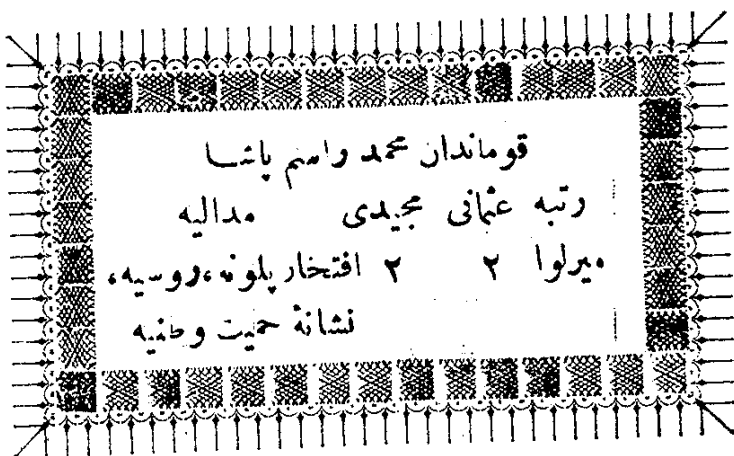 قوماندان محمد راسم پاشا
رتبه عثمانی مجیدی مدالیه
میرلوا ۲ ۲ افتخار پلونه، روسیه،
نشانهٔ حمیت وطنیه